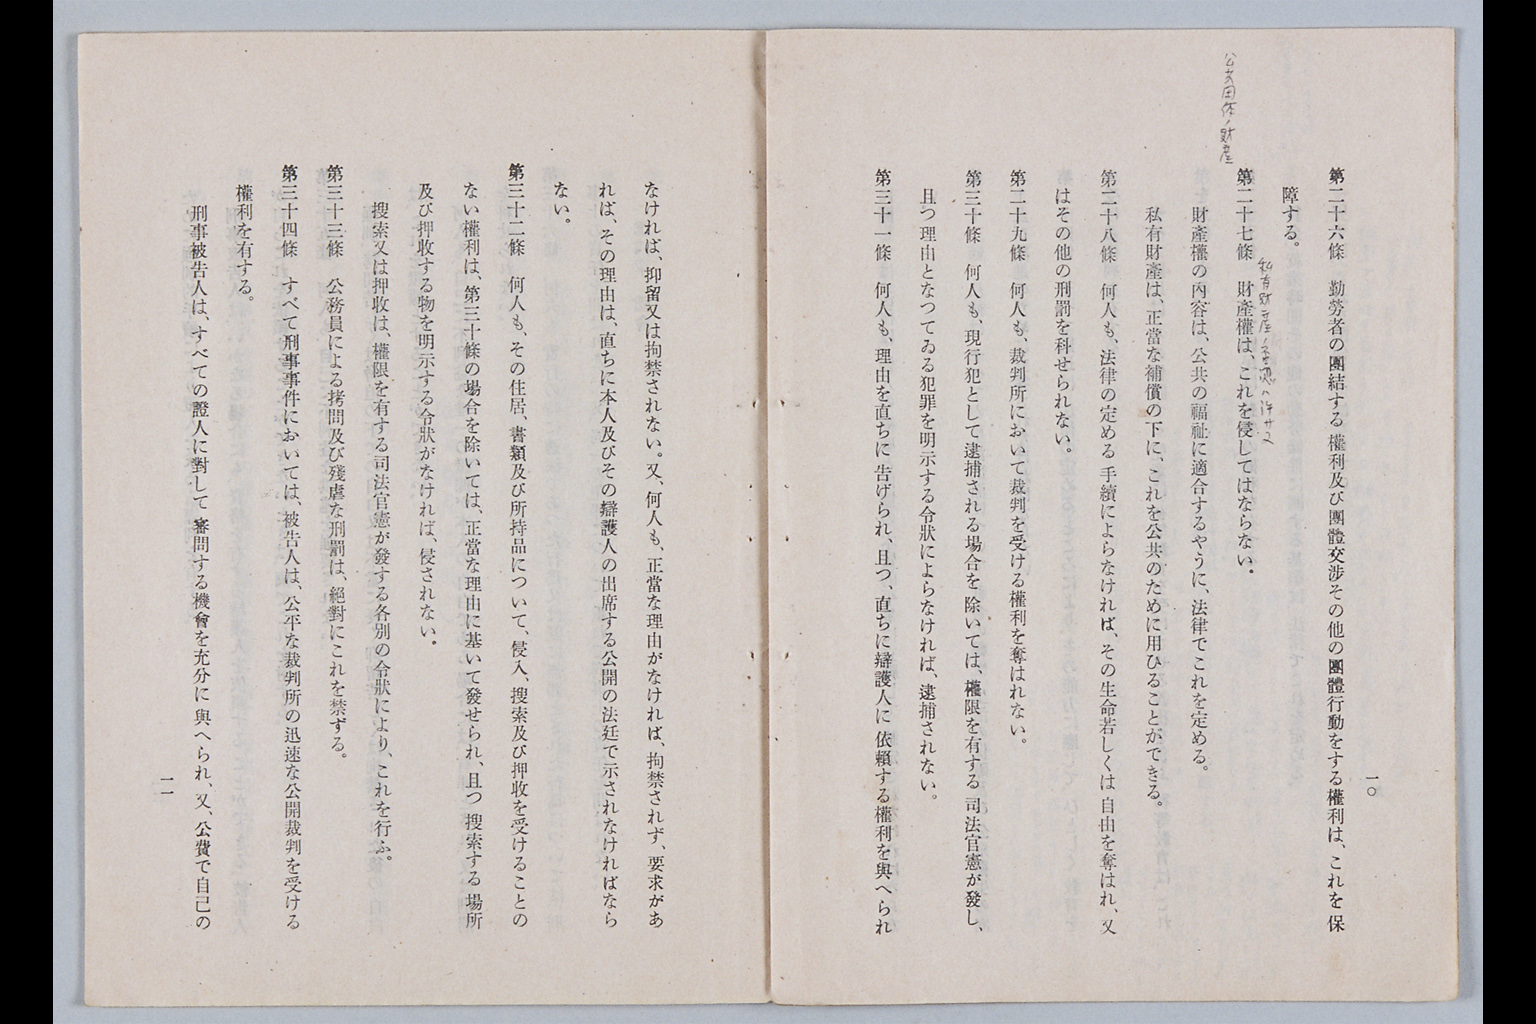 一〇
第二十六條　勤勞者の團結する權利及び團體交涉その他の團體行動をする權利は、これを保
障する。
第二十七條　財產權は、これを侵してはならない。
公共団体ノ財産
財產權の內容は、公共の福祉に適合するやうに、法律でこれを定める。
私有財產は、正當な補償の下に、これを公共のために用ひることができる。
第二十八條　何人も、法律の定める手續によらなければ、その生命若しくは自由を奪はれ、又
はその他の刑罰を科せられない。
第二十九條　何人も、裁判所において裁判を受ける權利を奪はれない。
第三十條　何人も、現行犯として逮捕される場合を除いては、權限を有する司法官憲が發し、
且つ理由となつてゐる犯罪を明示する令狀によらなければ、逮捕されない。
第三十一條　何人も、理由を直ちに告げられ、且つ、直ちに辯護人に依賴する權利を與へられ
なければ、抑留又は拘禁されない。又、何人も、正當な理由がなければ、拘禁されず、要求があ
れば、その理由は、直ちに本人及びその辯護人の出席する公開の法廷で示されなければなら
ない。
第三十二條　何人も、その住居、書類及び所持品について、侵入、搜索及び押收を受けることの
ない權利は、第三十條の場合を除いては、正當な理由に基いて發せられ、且つ搜索する場所
及び押收する物を明示する令狀がなければ、侵されない。
搜索又は押收は、權限を有する司法官憲が發する各別の令狀により、これを行ふ。
第三十三條　公務員による拷問及び殘虐な刑罰は、絕對にこれを禁ずる。
第三十四條　すべて刑事事件においては、被告人は、公平な裁判所の迅速な公開裁判を受ける
權利を有する。
刑事被告人は、すべての證人に對して審問する機會を充分に與へられ、又、公費で自己の
一一